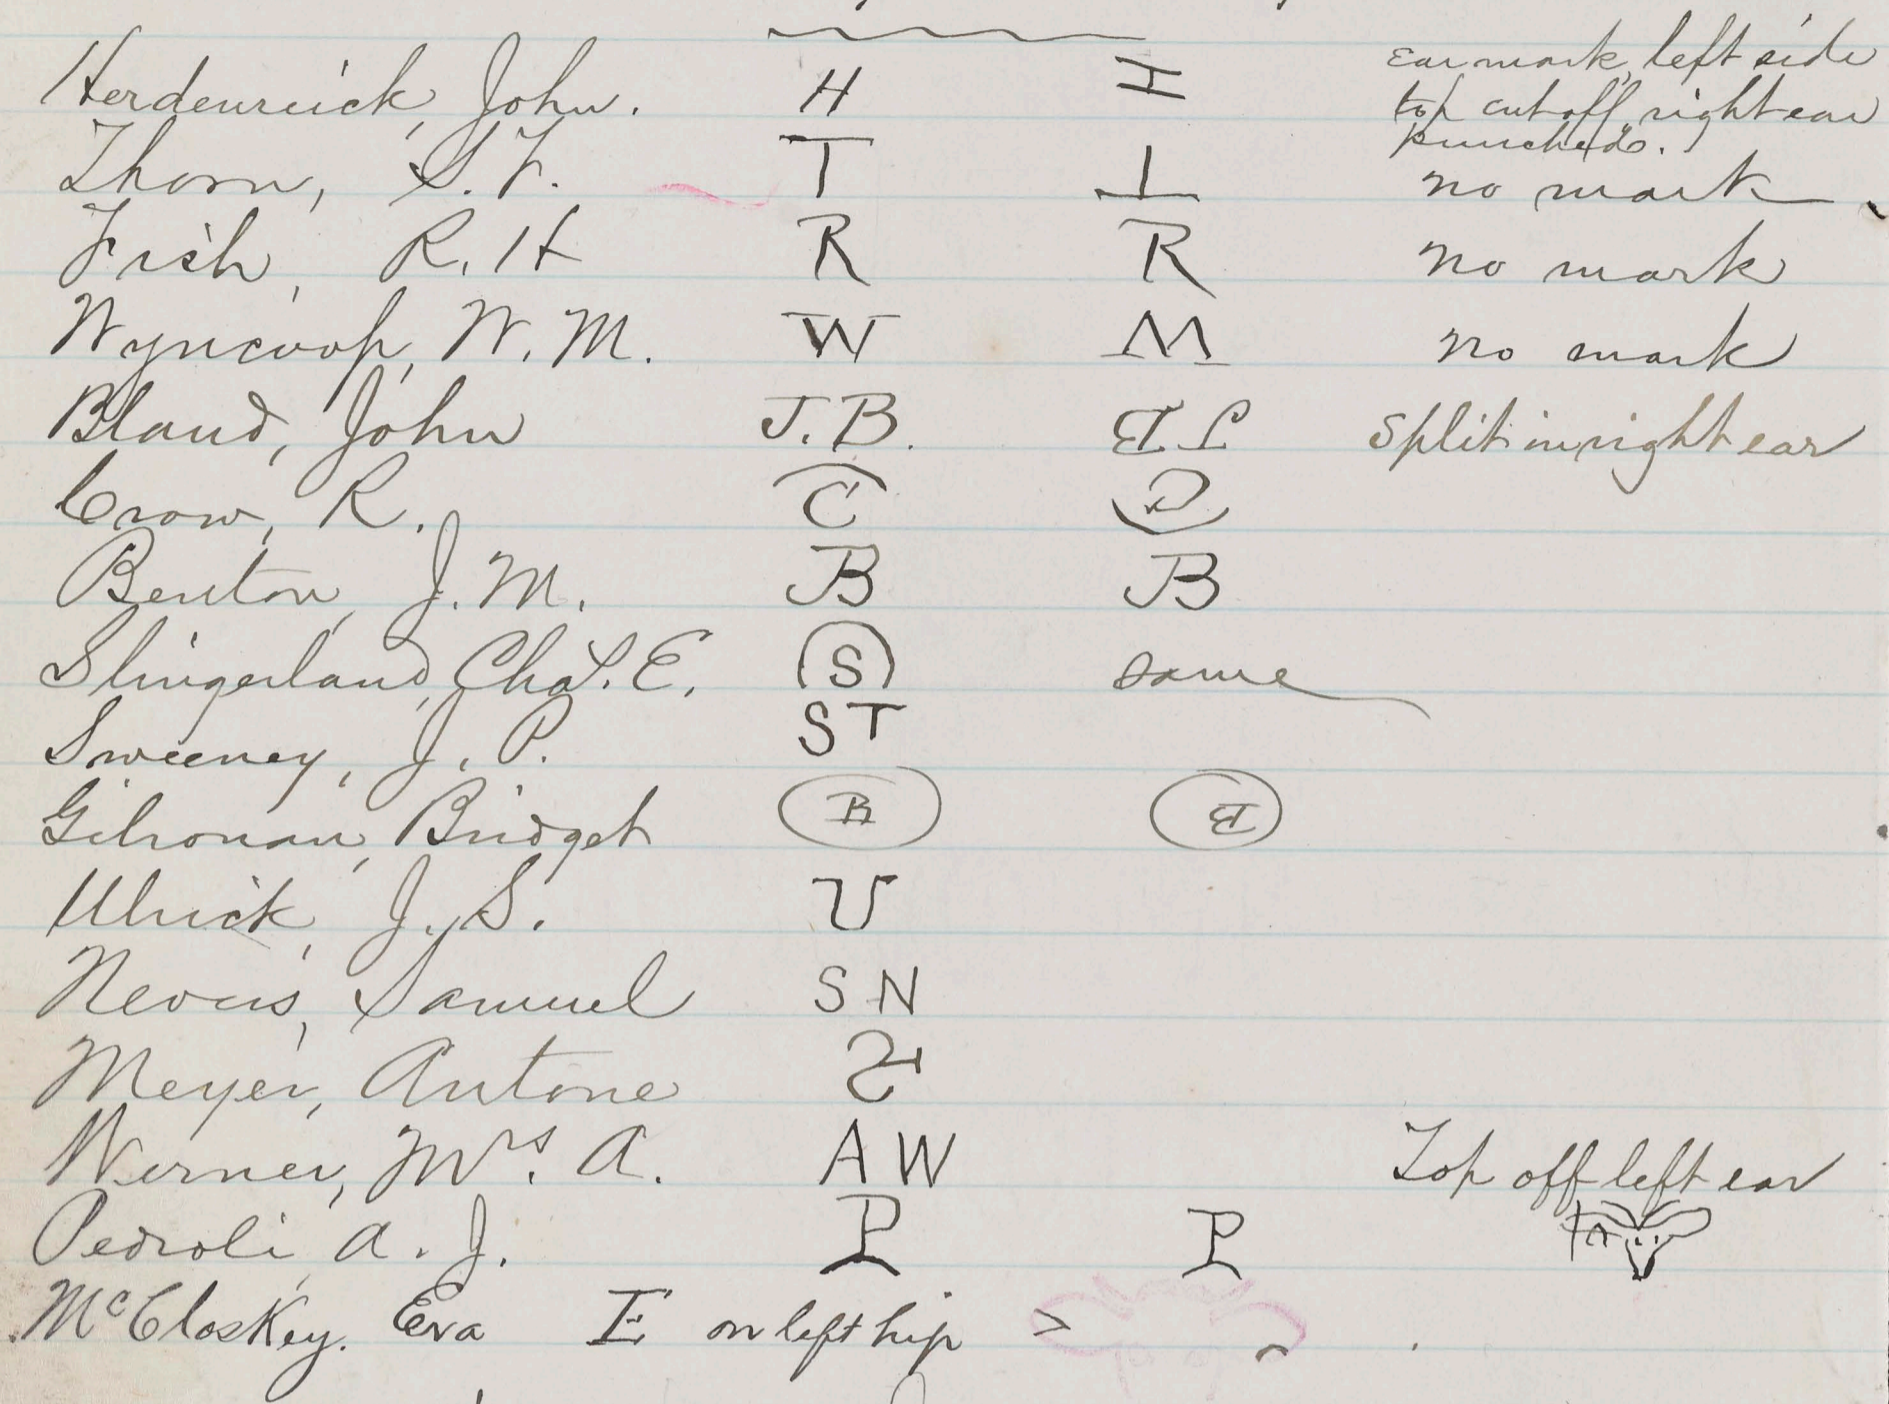 Herdenreick, John. H H Ear mark, left side
top cut off, right ear
punched.
Thorn, S. F. T T no mark
Fish, R. H R R no mark
Wyncoop, W. M. W M no mark
Bland, John J. B. B J Split in right ear
Crow, R. C C
Benton, J. M. JB JB
Slingerland, Chas. E. S same
Sweeney, J. P. ST
Gilronan, Bridget B B
Ulrick, J. S. U
Nevis, Samuel S N
Meyer, Antone
Werner, Mrs. A. A W Top off left ear
Pedroli, A. J. P P
McCloskey. Eva E on left hip >